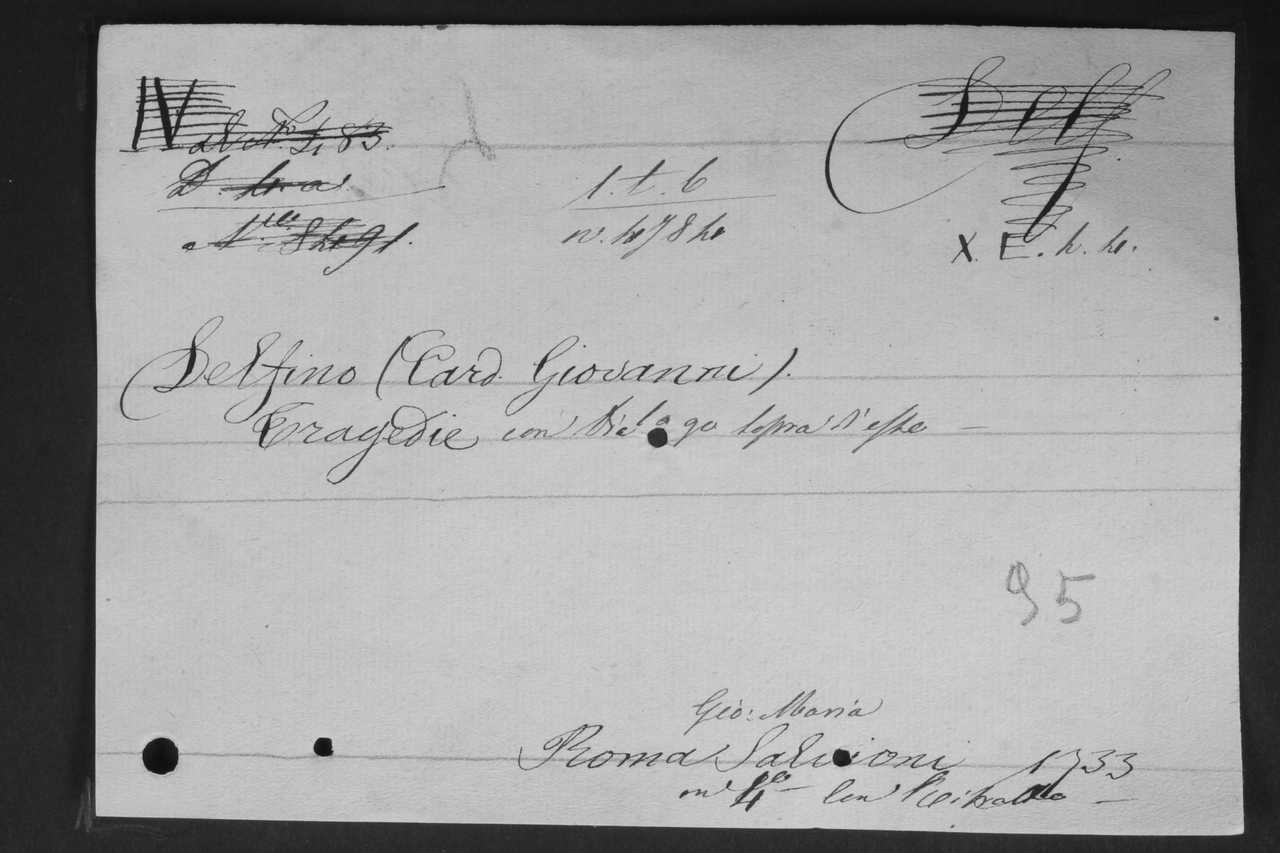 N
Delf
1. t. 6
n. 4784
X. E. 4. 4.
Delfino (Card. Giovanni).
Tragedie con Dialogo sopra d'esse —
95
Gio: Maria
Roma Salvioni 1733
in 4º — con Ritratto —